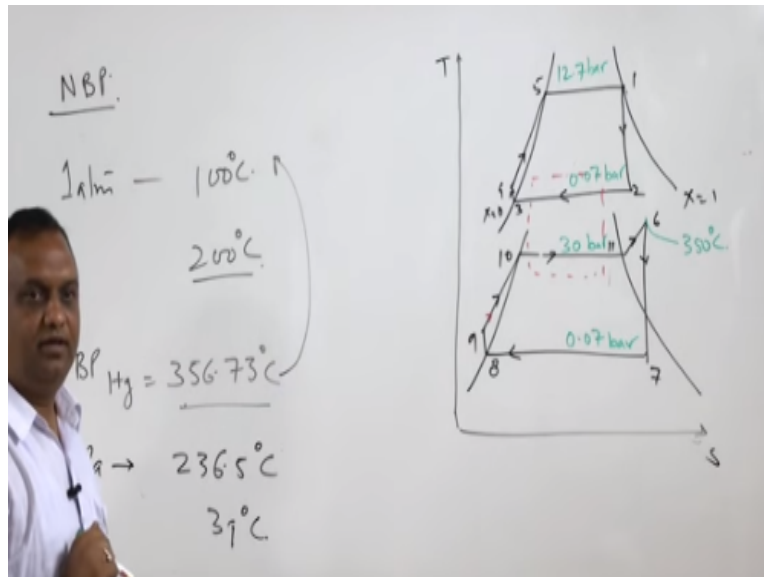 NBP.
1atm — 100°C.
200°C
BP Hg = 356.73°C
a → 236.5°C
39°C
T
5
12.7 bar
1
4
x=0
3
0.07 bar
2
x=1
6
350°C
10
30 bar
11
9
8
0.07 bar
7
S